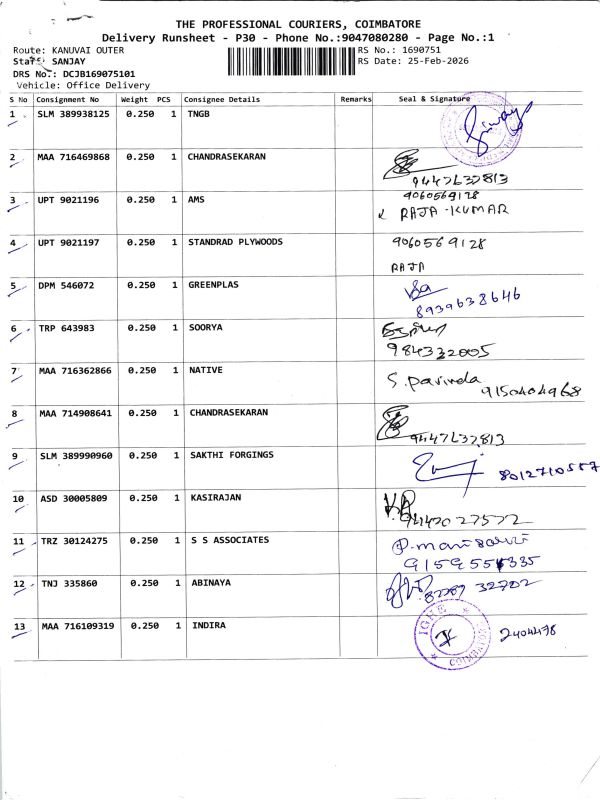 THE PROFESSIONAL COURIERS, COIMBATORE
Delivery Runsheet - P30 - Phone No.:9047080280 - Page No.:1
Route: KANUVAI OUTER RS No.: 1690751
Staff: SANJAY RS Date: 25-Feb-2026
DRS No.: DCJB169075101
Vehicle: Office Delivery
S No Consignment No Weight PCS Consignee Details Remarks Seal & Signature
1 SLM 389938125 0.250 1 TNGB
2 MAA 716469868 0.250 1 CHANDRASEKARAN
9447632813
3 UPT 9021196 0.250 1 AMS 9060569128
RAJA-KUMAR
4 UPT 9021197 0.250 1 STANDRAD PLYWOODS 9060569128
RAJA
5 DPM 546072 0.250 1 GREENPLAS
8939638646
6 TRP 643983 0.250 1 SOORYA
984332005
7 MAA 716362866 0.250 1 NATIVE
9150404968
8 MAA 714908641 0.250 1 CHANDRASEKARAN
9447632813
9 SLM 389990960 0.250 1 SAKTHI FORGINGS 8012710557
10 ASD 30005809 0.250 1 KASIRAJAN
11 TRZ 30124275 0.250 1 S S ASSOCIATES
12 TNJ 335860 0.250 1 ABINAYA
13 MAA 716109319 0.250 1 INDIRA 2404478
COIMBATORE